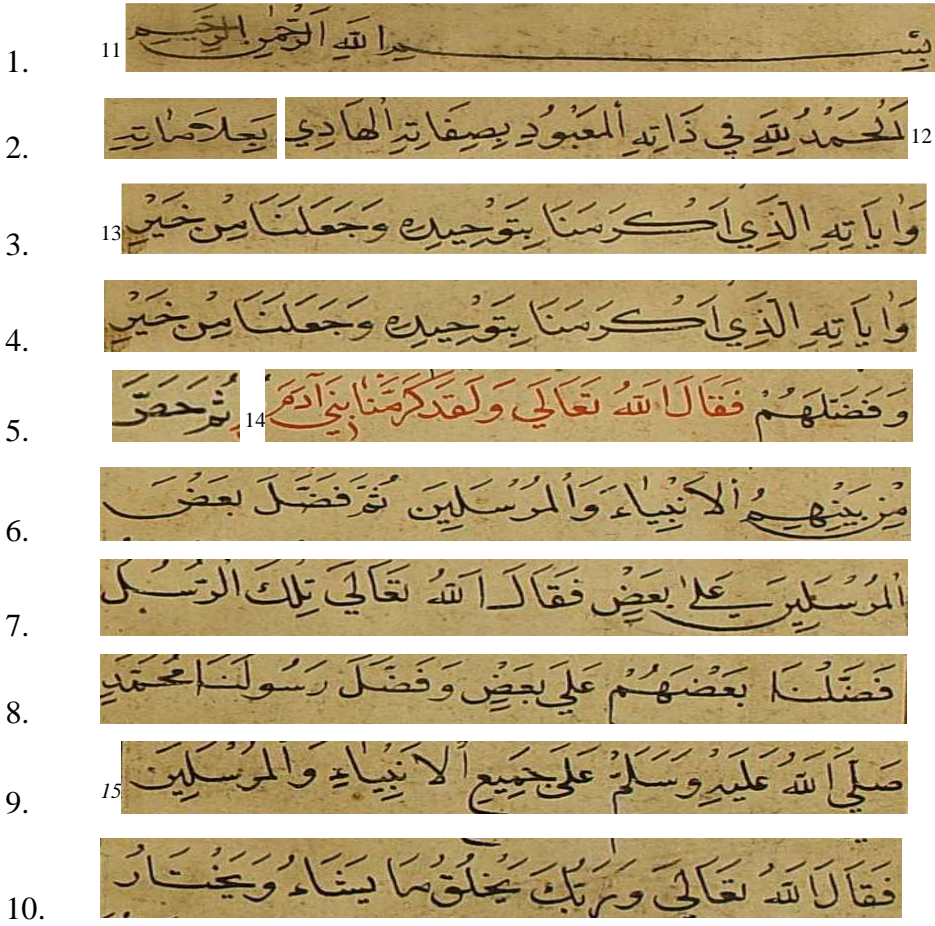 1. بِسْمِ اللهِ الرَّحْمٰنِ الرَّحِيمِ 11
2. اَلْحَمْدُ لِلّٰهِ فِي ذَاتِهِ ألمَعْبُودِ بِصِفَاتِهِ الهَادِي بِعَلامَاتِهِ 12
3. وَاٰيَاتِهِ الَّذِي اَكْرَمَنَا بِتَوْحِيدِهِ وَجَعَلَنَا مِنْ خَيْرِ 13
4. وَاٰيَاتِهِ الَّذِي اَكْرَمَنَا بِتَوْحِيدِهِ وَجَعَلَنَا مِنْ خَيْرِ
5. وَفَضَّلَهُمْ فَقَالَ اللهُ تَعَالَي وَلَقَدْ كَرَّمْنَا بَنِي آدَمَ 14 ثُمَّ حَصَّ
6. مِنْ بَيْنِهِمُ ألاَنْبِيَاءَ وَألمُرْسَلِينَ ثُمَّ فَضَّلَ بَعْضَ
7. المُرْسَلِينَ عَلٰي بَعْضٍ فَقَالَ اللهُ تَعَالَي تِلْكَ الرُّسُلُ
8. فَضَّلْنَا بَعْضَهُمْ عَلَي بَعْضٍ وَفَضَّلَ رَسُولَنَا مُحَمَّدٍ
9. صَلَّي اللهُ عَلَيْهِ وَسَلَّمَ عَلَي جَمِيعِ الاَنْبِيَاءِ وَالمُرْسَلِينَ 15
10. فَقَالَ اللهُ تَعَالَي وَرَبُّكَ يَخْلُقُ مَا يَشَاءُ وَيَخْتَارُ